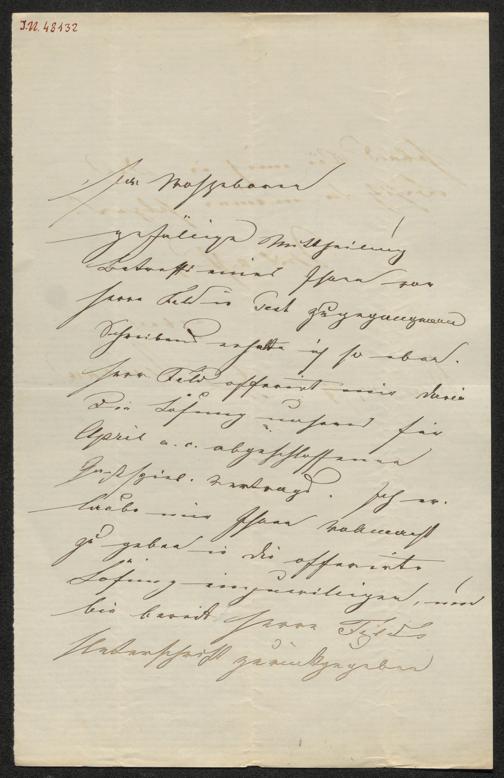 I.N. 48432
Euer Wohlgeboren
gefällige Mittheilung
Betreffs eines Ihnen von
Herrn Feld in Pest zugegangenen
Schreibens erhalte ich so eben.
Herr Feld offerirt mir darin
die Lösung unseres für
April a. c. abgeschlossenen
Gastspiel-Vertrags. Ich er-
laube mir Ihnen Vollmacht
zu geben in die offerirte
Lösung einzuwilligen, und
bin bereit Herrn Feld's
Unterschrift zurückzugeben